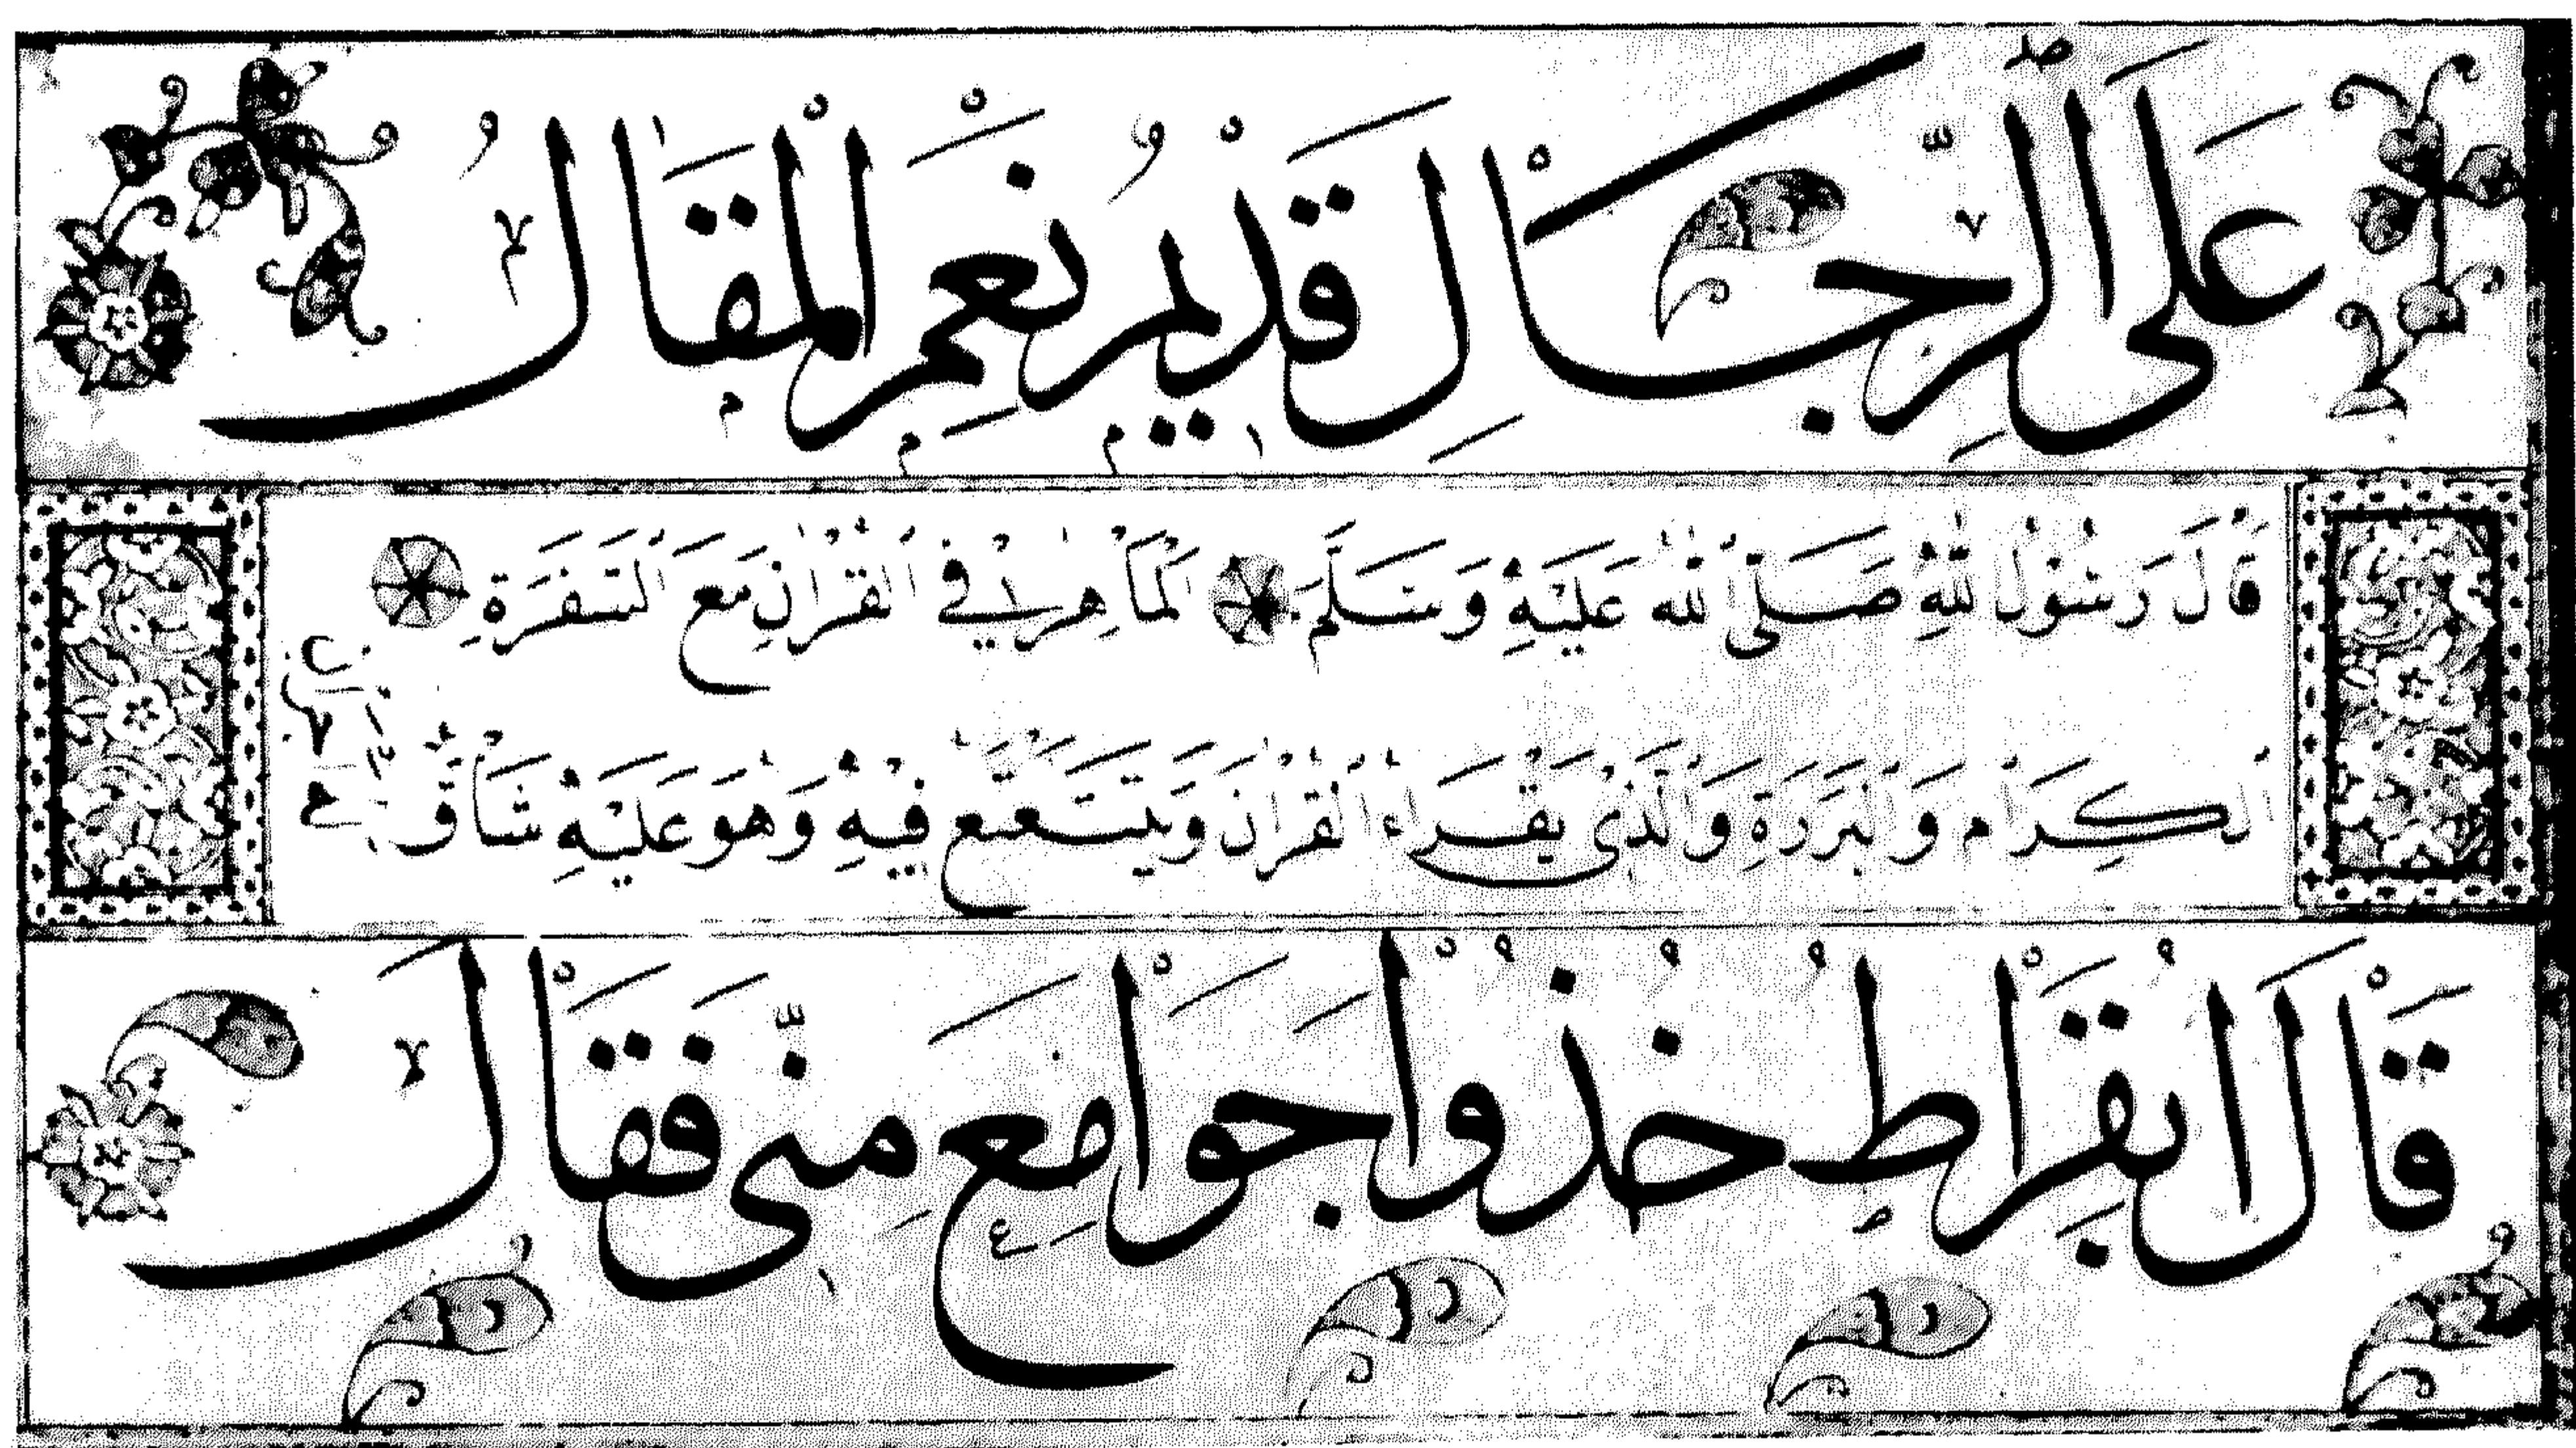 عَلَى الرِّجَالِ قَدْيمُ نِعْمَ الْمَقَالُ
قَالَ رَسُوْلُ اللهِ صَلَّى الله عَلَيْهِ وَسَلَّمَ اَلْمَاهِرُ فِي الْقُرْانِ مَعَ السَّفَرَةِ
الكِرَام وَالْبَرَرَةِ وَالَّذِى يَقْرَاء الْقُرْانَ وَيَتَتَعْتَع فِيْهِ وَهُوَ عَلَيْهِ شَاقٌّ
قَالَ ابُقْرَاطُ خُذُوْا جَوَامِعَ مِنّي فَقَالَ